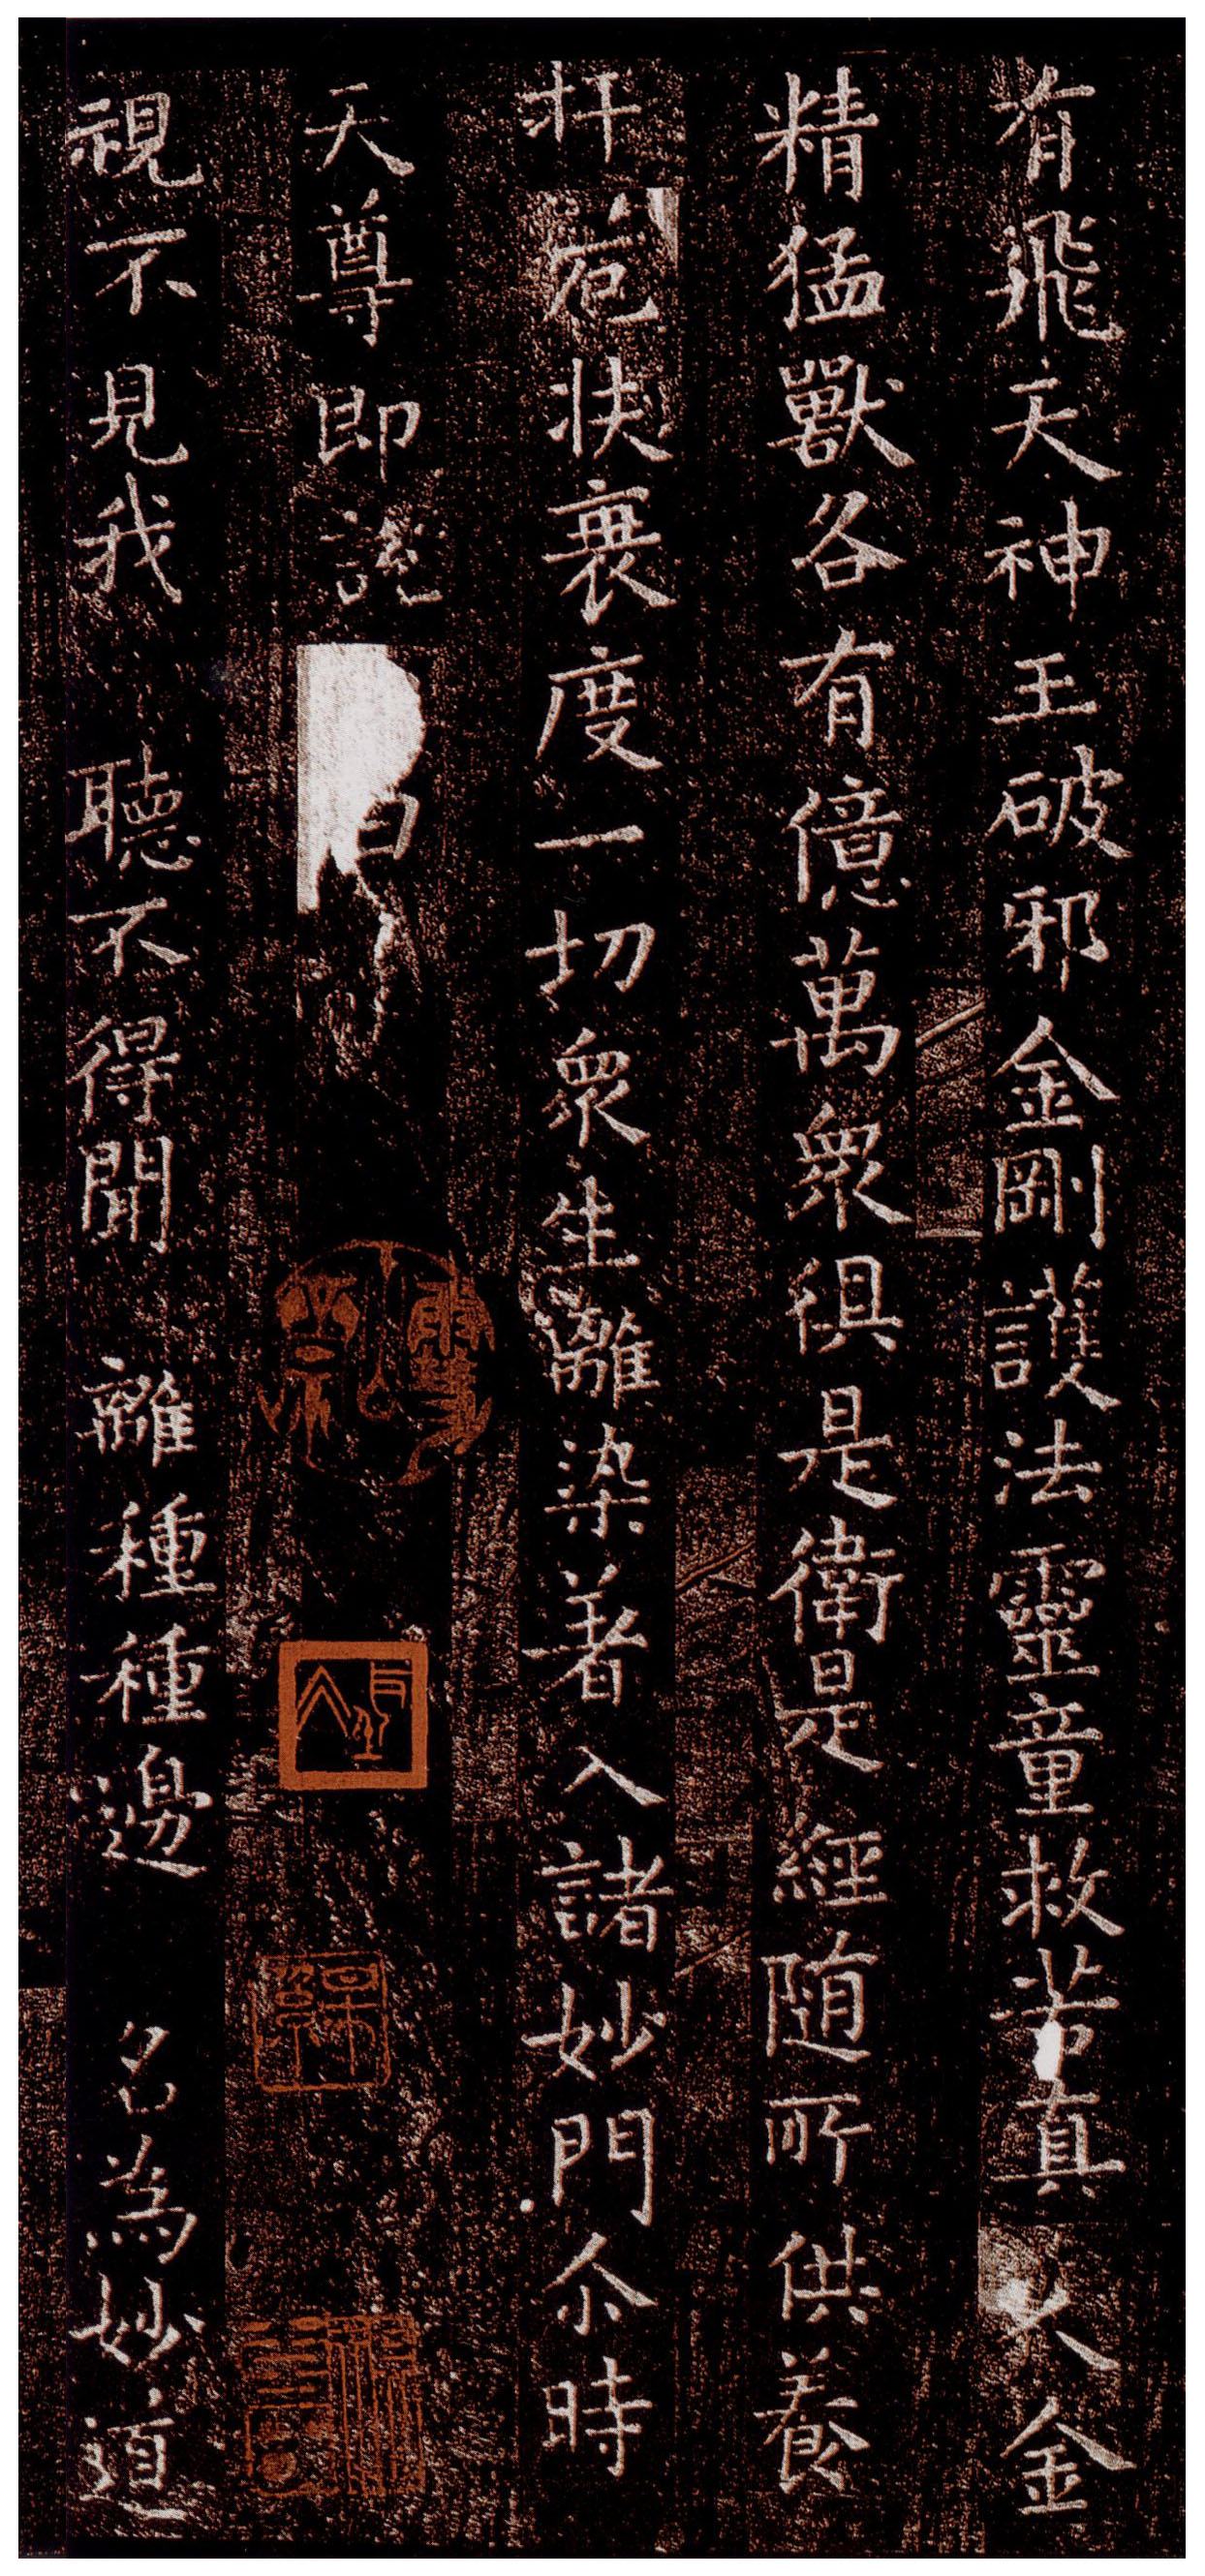 有飛天神王破邪金剛護法靈童救苦真人金
精猛獸各有億萬衆俱是衛是經随所供養
扞厄扶衰度一切衆生離染著入諸妙門尒時
天尊即説 曰
視不見我 聽不得聞 離種種邊 名為妙道